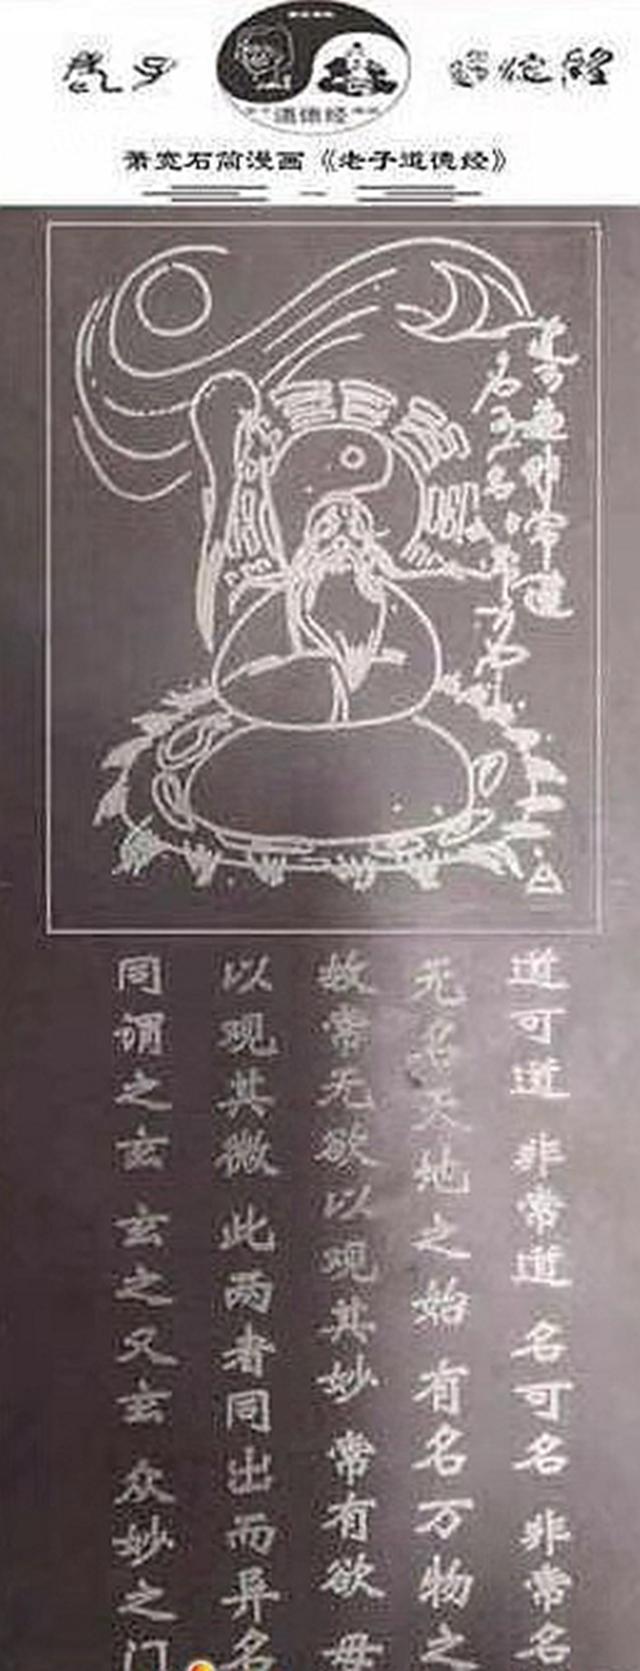 老子
道德经
道德经
萧宽石简漫画《老子道德经》
道可道非常道
名可名非常名
道可道 非常道 名可名 非常名
无名天地之始 有名万物之
故常无欲以观其妙 常有欲 母
以观其微 此两者同出而异名
同谓之玄 玄之又玄 众妙之门